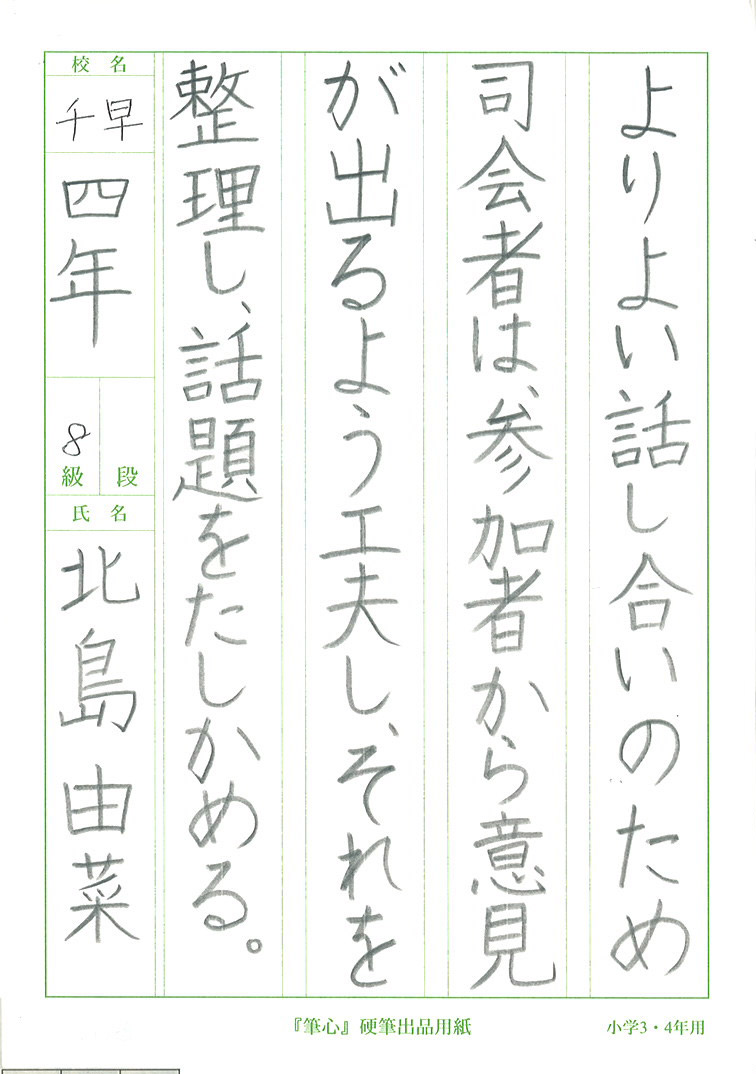 よりよい話し合いのため
司会者は、参加者から意見
が出るよう工夫し、それを
整理し、話題をたしかめる。
校名
千早
四年
段
8級
氏名
北島由菜
『筆心』硬筆出品用紙
小学3・4年用